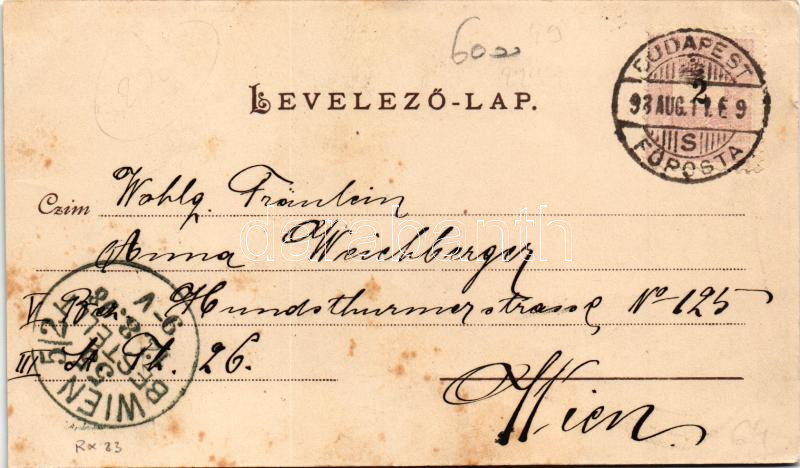 60
LEVELEZŐ-LAP.
BUDAPEST
2
98 AUG. 11. É 9
S
FŐPOSTA
Czim Wohlg. Fräulein
Anna Weichberger
V Bez. Hundsthurmerstrasse No 125
III St. Th. 26.
Wien
WIEN 5/2
BESTELLT
9-V
darabanth
Rx 23
64